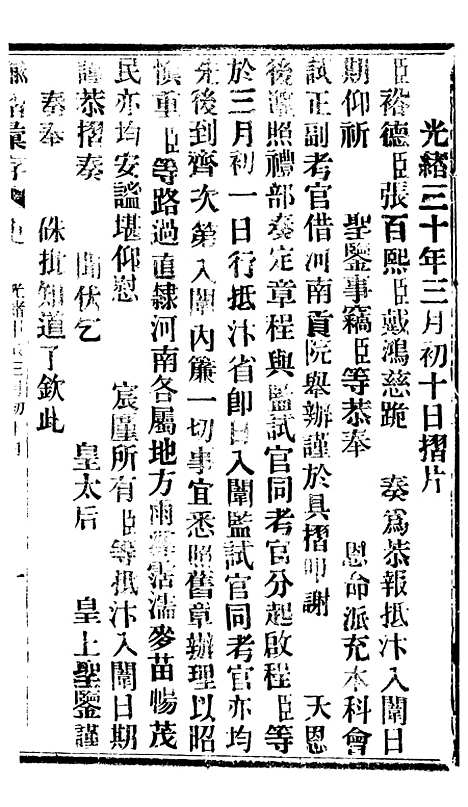 光緒三十年三月初十日摺片
臣裕德臣張百熙臣戴鴻慈跪 奏爲恭報抵汴入闈日
期仰祈 聖鑒事竊臣等恭奉 恩命派充本科會
試正副考官借河南貢院舉辦謹於具摺叩謝 天恩
後遵照禮部奏定章程與監試官同考官分起啟程臣等
於三月初一日行抵汴省卽日入闈監試官同考官亦均
先後到齊次第入闈內簾一切事宜悉照舊章辦理以昭
愼重臣等路過直隷河南各屬地方雨澤霑濡麥苗暢茂
民亦均安謐堪仰慰 宸廑所有臣等抵汴入闈日期
謹恭摺奏 聞伏乞 皇太后 皇上聖鑒謹
奏奉 硃批知道了欽此
光緒三十年三月初十日 一